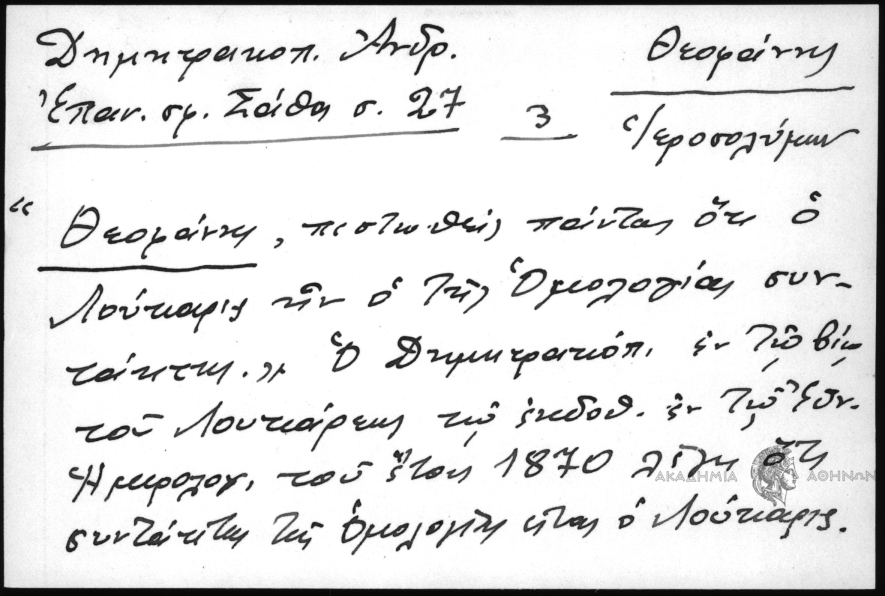 Δημητρακοπ. Ἀνδρ.
Θεοφάνης
Ἐπαν. σφ. Σάθα σ. 27
3
Ἱεροσολύμων
“ Θεοφάνης, πιστωθεὶς πάντας ὅτι ὁ
Λούκαρις ἦν ὁ τῆς Ὁμολογίας συν-
τάκτης.» Ὁ Δημητρακόπ. ἐν τῷ βίῳ
τοῦ Λουκάρεως τῷ ἐκδοθ. ἐν τῷ Ἐθν.
Ἡμερολογ. τοῦ ἔτους 1870 λέγει ὅτι
συντάκτης τῆς Ὁμολογίας ἦτο ὁ Λούκαρις.
ΑΚΑΔΗΜΙΑ ΑΘΗΝΩΝ